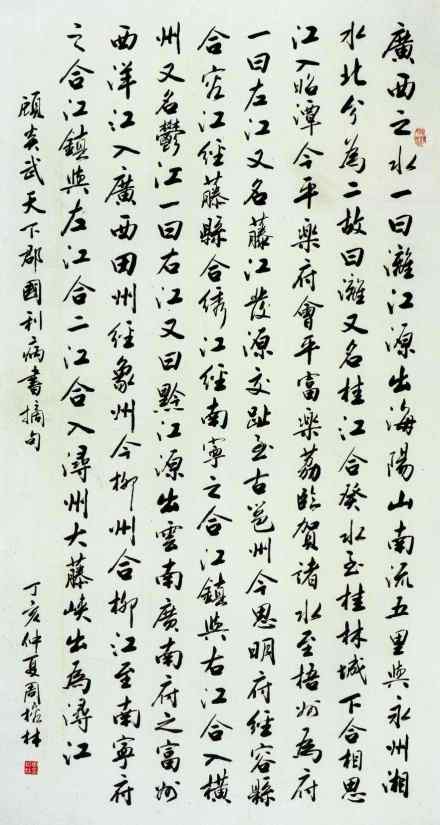 廣西之水一曰灕江源出海陽山南流五里與永州湘
水北分為二故曰灕又名桂江合癸水至桂林城下合相思
江入昭潭今平樂府會平富樂荔臨賀諸水至梧州為府
一曰左江又名藤江發源交趾至古邕州今思明府經容縣
合容江經藤縣合綉江經南寧之合江鎮與右江合入橫
州又名鬱江一曰右江又曰黔江源出雲南廣南府之富州
西洋江入廣西田州經象州今柳州合柳江至南寧府
之合江鎮與左江合二江合入潯州大藤峽出為潯江
顧炎武天下郡國利病書摘句
丁亥仲夏周桂林